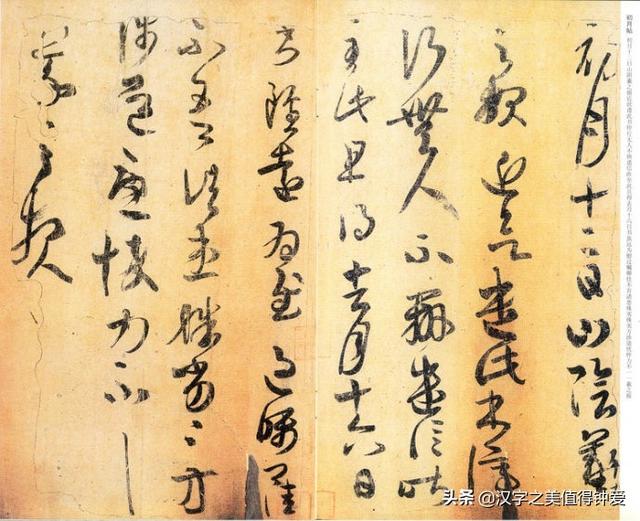 初月帖
初月十二日山陰羲
之報近欲遣此書停
行無人不辦遣信昨
至此且得去月十六日
書雖遠為慰過囑卿佳
不吾諸患殊劣殊劣方
涉道憂悴力不一一
羲之報
头条 @汉字之美值得钟爱